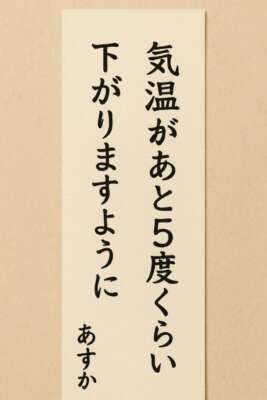 気温があと5度くらい
下がりますように
あすか